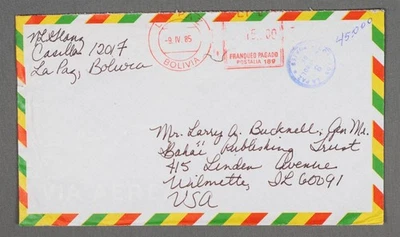 Casilla 12017
La Paz, Bolivia
-9. IV. 85
BOLIVIA
FRANQUEO PAGADO
POSTALIA 189
45.000
Mr. Larry A. Bucknell, Gen Ma.
Bahá'í Publishing Trust
415 Linden Avenue
Wilmette, IL 60091
USA